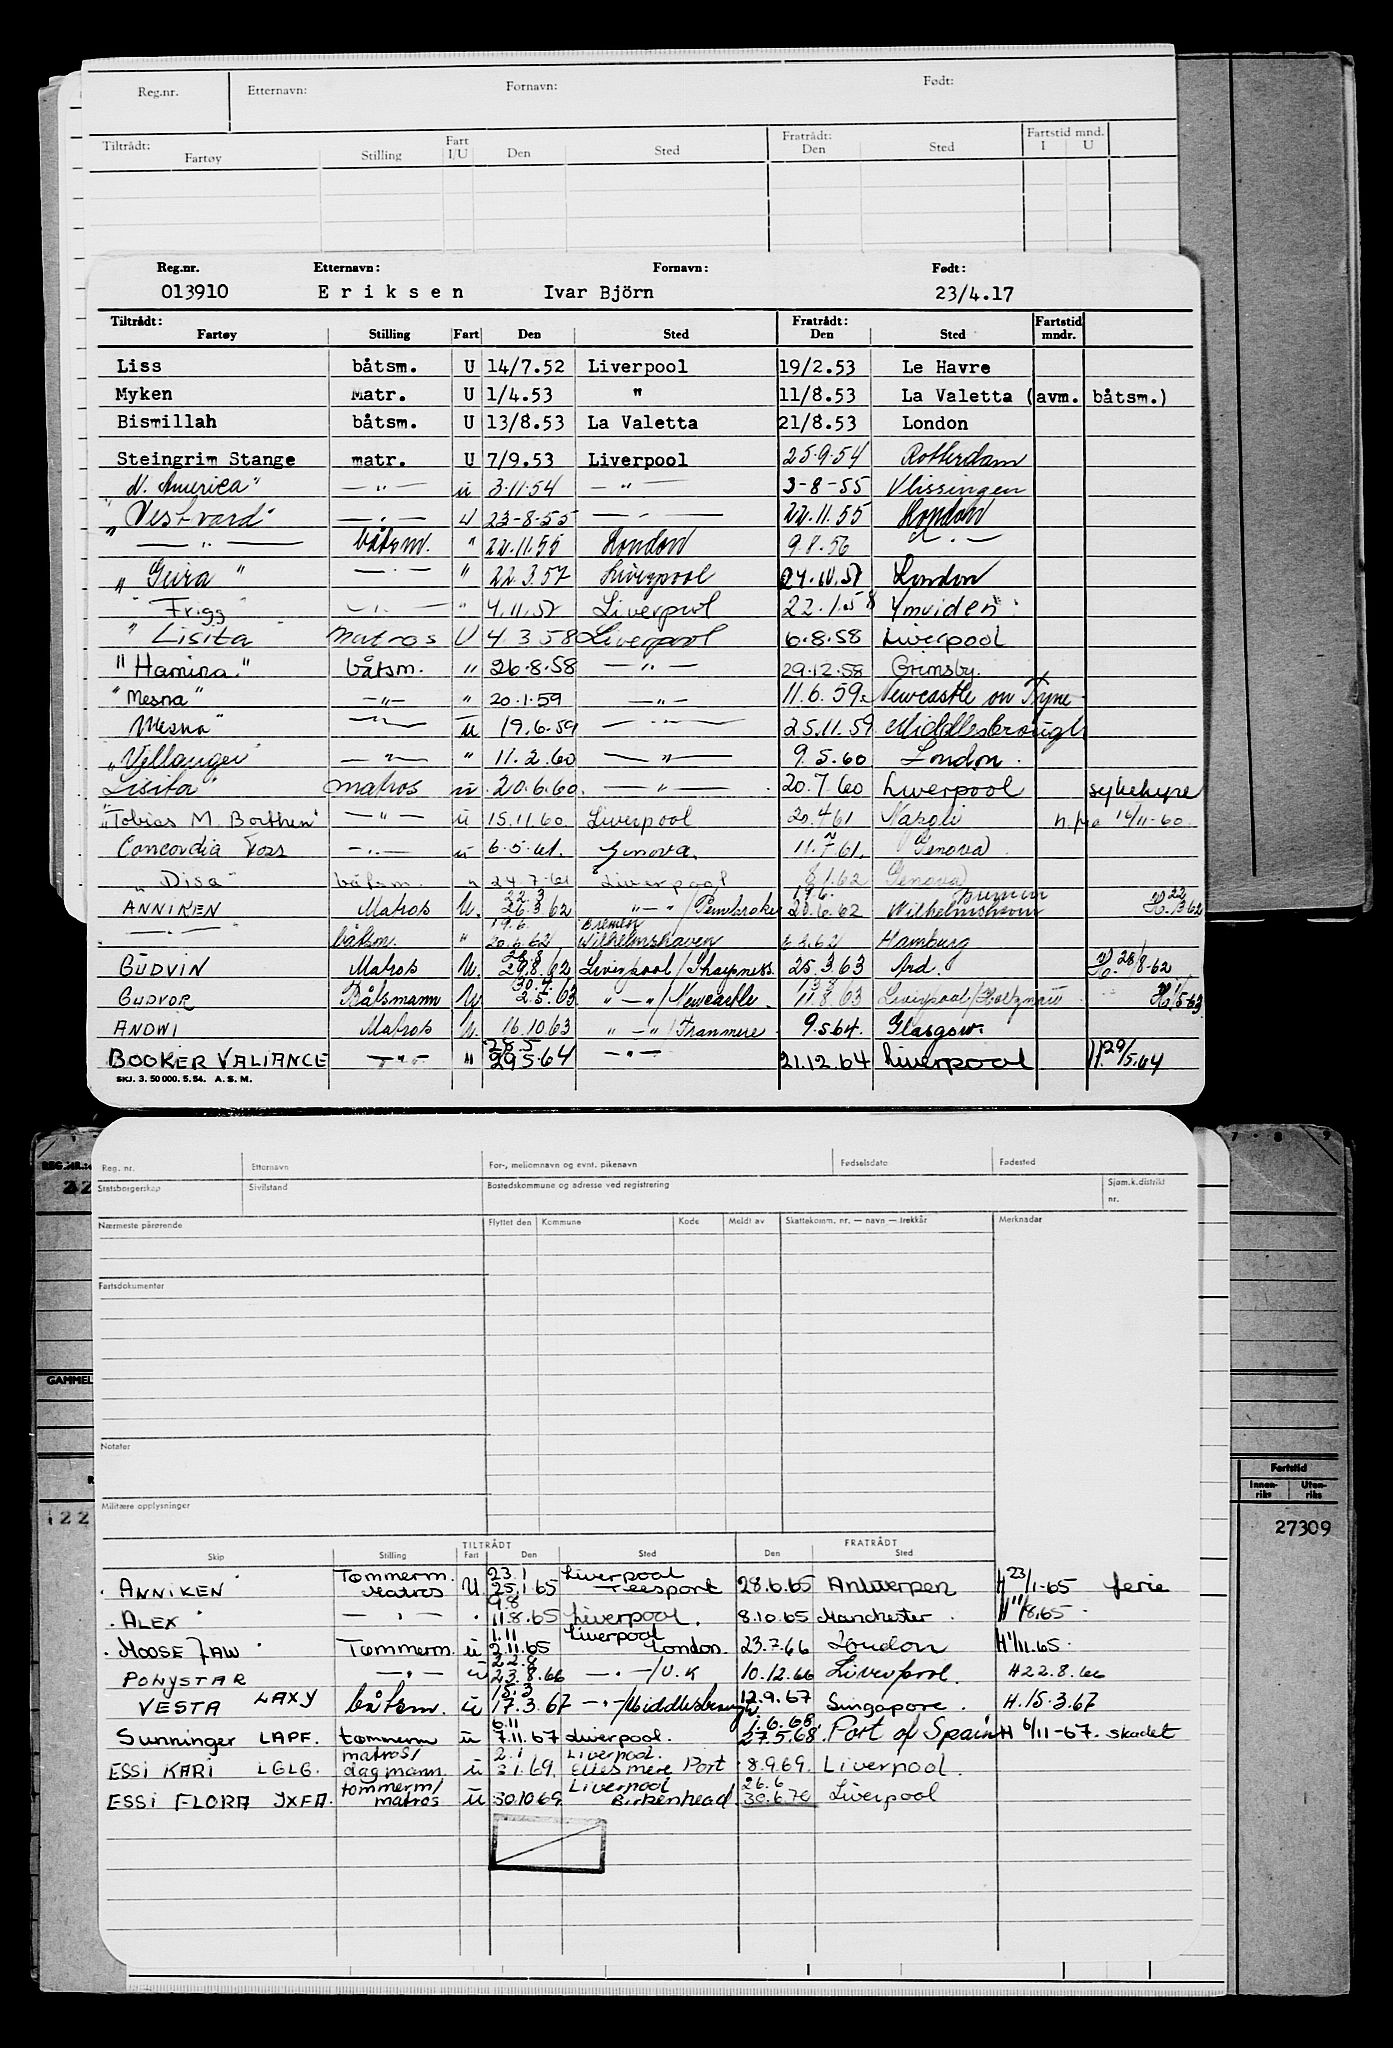 Reg.nr. Etternavn: Fornavn: Født:
Tiltrådt: Fartøy Stilling Fart I/U Den Sted Fratrådt: Den Sted Fartstid mnd. I U
Reg.nr. Etternavn: Fornavn: Født:
013910 Eriksen Ivar Björn 23/4.17
Tiltrådt: Fartøy Stilling Fart Den Sted Fratrådt: Den Sted Fartstid mndr.
Liss båtsm. U 14/7.52 Liverpool 19/2.53 Le Havre
Myken Matr. U 1/4.53 " 11/8.53 La Valetta (avm. båtsm.)
Bismillah båtsm. U 13/8.53 La Valetta 21/8.53 London
Steingrim Stange matr. U 7/9.53 Liverpool 25.9.54 Rotterdam
"N. America" —"— u 3.11.54 —"— 3-8-55 Vlissingen
"Vestvard" —"— U 23-8-55 —"— 22.11.55 London
—"— båtsm. " 22.11.55 London 9.8.56 —"—
"Geira" —"— " 22.3.57 Liverpool London
"Frigg" —"— " 4.11.57 Liverpool 22.1.58 Ymuiden
"Lisita" Matros U 4.3.58 Liverpool 6.8.58 Liverpool
"Hamina" båtsm. " 26.8.58 —"— 29.12.58 Grimsby.
"Mesna" —"— " 20.1.59 —"— 11.6.59. Newcastle on Tyne
Mesna" —"— u 19.6.59 —"— 25.11.59 Middlesbrough
"Villanger" —"— " 11.2.60 —"— 9.5.60 London.
Lisita" matros u 20.6.60. —"— 20.7.60 Liverpool sykehype
"Tobias M. Borthen" —"— u 15.11.60 Liverpool 20.4.61 Napoli 16/11-60.
Concordia Foss —"— u 6.5.61. Genova. 11.7.61. Genova.
"Disa" båtsm. " 24.7.61 Liverpool 8.1.62 Genova
22.3 19.6.
ANNIKEN Matros U. 26.3.62 —"— /Pembroke 20.6.62 Wilhelmshavn H. 22/3 62
19.6. Bremen
—"— båtsm. " 20.6.62 Wilhelmshaven 62 Hamburg
28.8
GUDVIN Matros U. 29.8.62 Liverpool/Sharpness 25.3.63 Ard. H. 28/8-62
30.4.
GUDVOR Båtsmann U. 2.5.63 "—"/Newcastle. 11.8.63 Liverpool/Holtenau H. 1/5-63
ANDWI Matros U. 16.10.63 "—"/Tranmere. 9.5.64. Glasgow.
28.5
BOOKER VALIANCE —"— " 29.5.64 —"— 21.12.64 Liverpool H. 29/5.64
SKJ. 3. 50 000. 5. 54. A. S. M.
REG.NR.:
Reg. nr. Etternavn For-, mellomnavn og evnt. pikenavn Fødselsdato Fødested
Statsborgerskap Sivilstand Bostedskommune og adresse ved registrering Sjøm.k.distrikt nr.
Nærmeste pårørende Flyttet den Kommune Kode Meldt av Skattekomm. nr. — navn — trekkår Merknader
Fartsdokumenter
GAMMEL
Notater
Militære opplysninger
Fartstid
Innen-riks Uten-riks
122 27309
TILTRÅDT FRATRÅDT
Skip Stilling Fart Den Sted Den Sted
Tømmerm. 23.1 Liverpool
ANNIKEN Matros U 25.1.65 Teesport 28.6.65 Antwerpen H 23/1-65 ferie
9.8
ALEX —"— " 11.8.65 Liverpool. 8.10.65 Manchester. H 11/8.65
1.11 Liverpool
MOOSE JAW Tømmerm. u 2.11.65 London. 23.7.66 London H 1/11.65.
22.8
PONYSTAR —"— u 23.8.66 —"—/U.K 10.12.66 Liverpool. H 22.8.66
15.3
VESTA LAXY båtsm. u 17.3.67 —"—/Middlesbrough 12.9.67 Singapore. H. 15.3.67
6.11 1.6.68
Sunninger LAPF. tømmerm u 7.11.67 Liverpool. 27.5.68. Port of Spain H 6/11-67. skadet
matros/ 2.1 Liverpool.
ESSI KARI LGLG. dagmann. u 3.1.69. Ellesmere Port 8.9.69. Liverpool.
tømmerm/ Liverpool 26.6
ESSI FLORA JXFA. matros u 30.10.69 Birkenhead 30.6.70 Liverpool